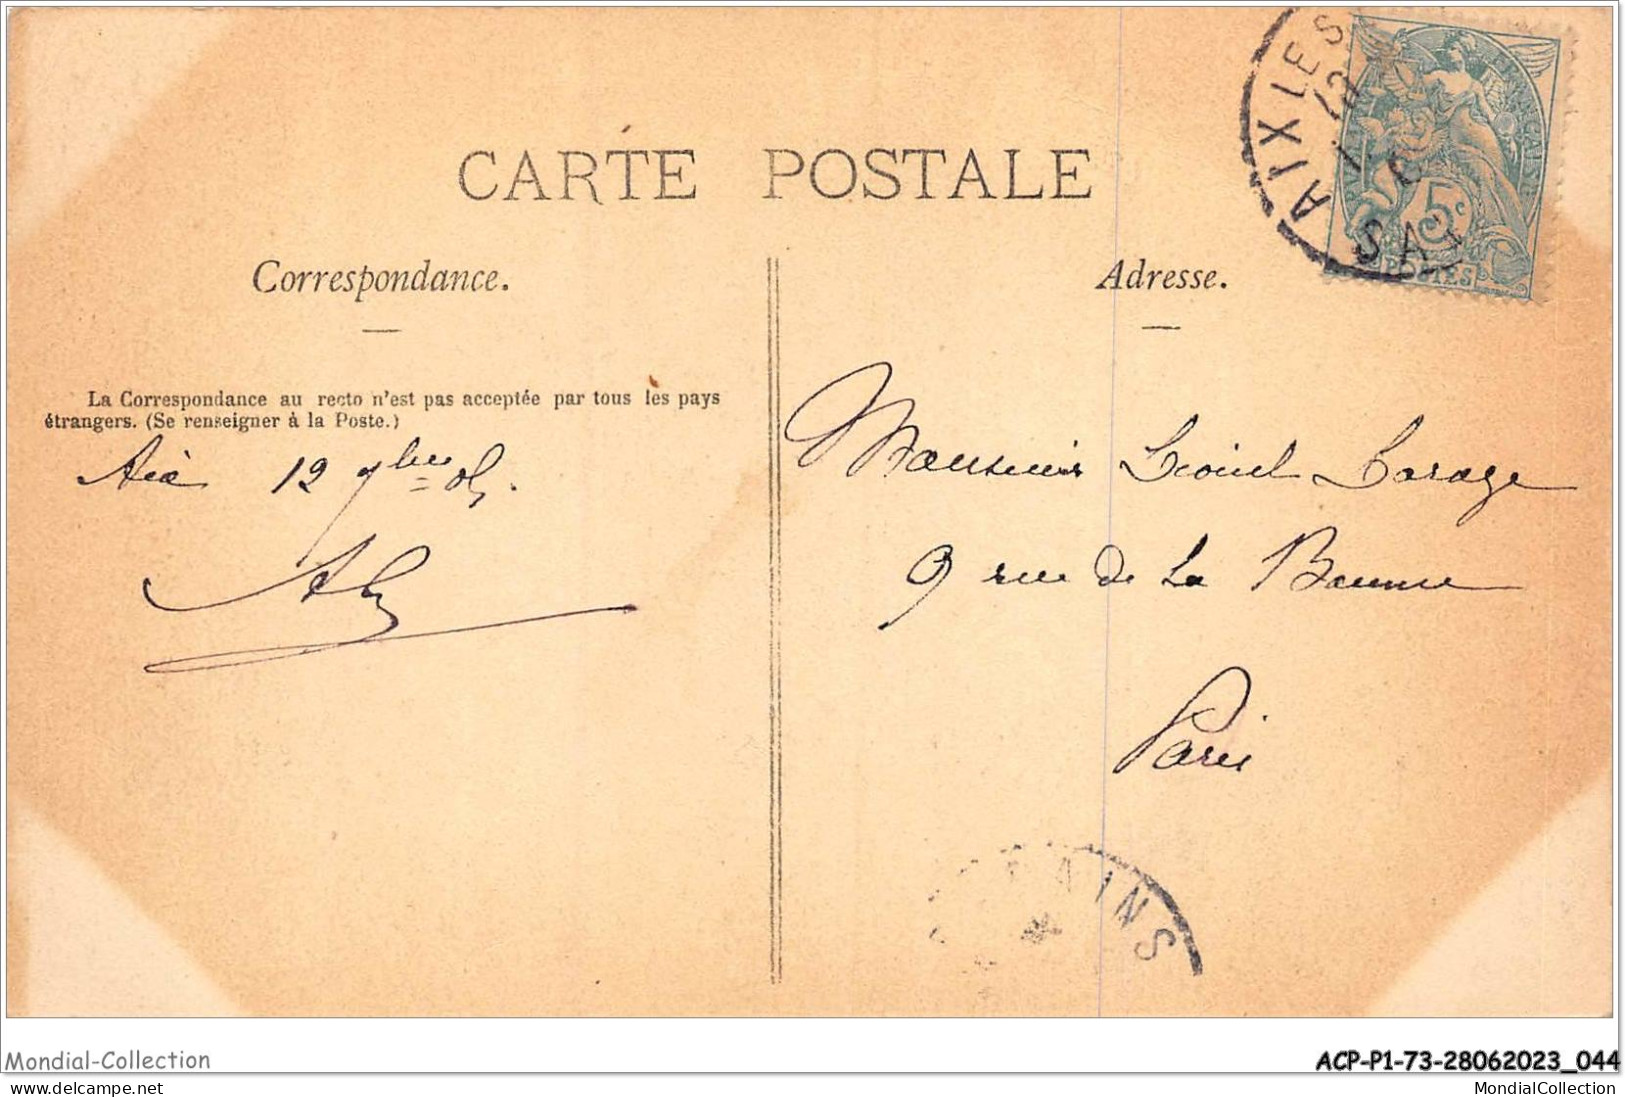 CARTE POSTALE
Correspondance.
Adresse.
La Correspondance au recto n'est pas acceptée par tous les pays
étrangers. (Se renseigner à la Poste.)
Aix 12 9bre 05.
Monsieur Lionel
9 rue de La Baume
Paris
AIX LES
SAV
5c
POSTES
BAINS
Mondial-Collection
ACP-P1-73-28062023_044
delcampe.net
MondialCollection